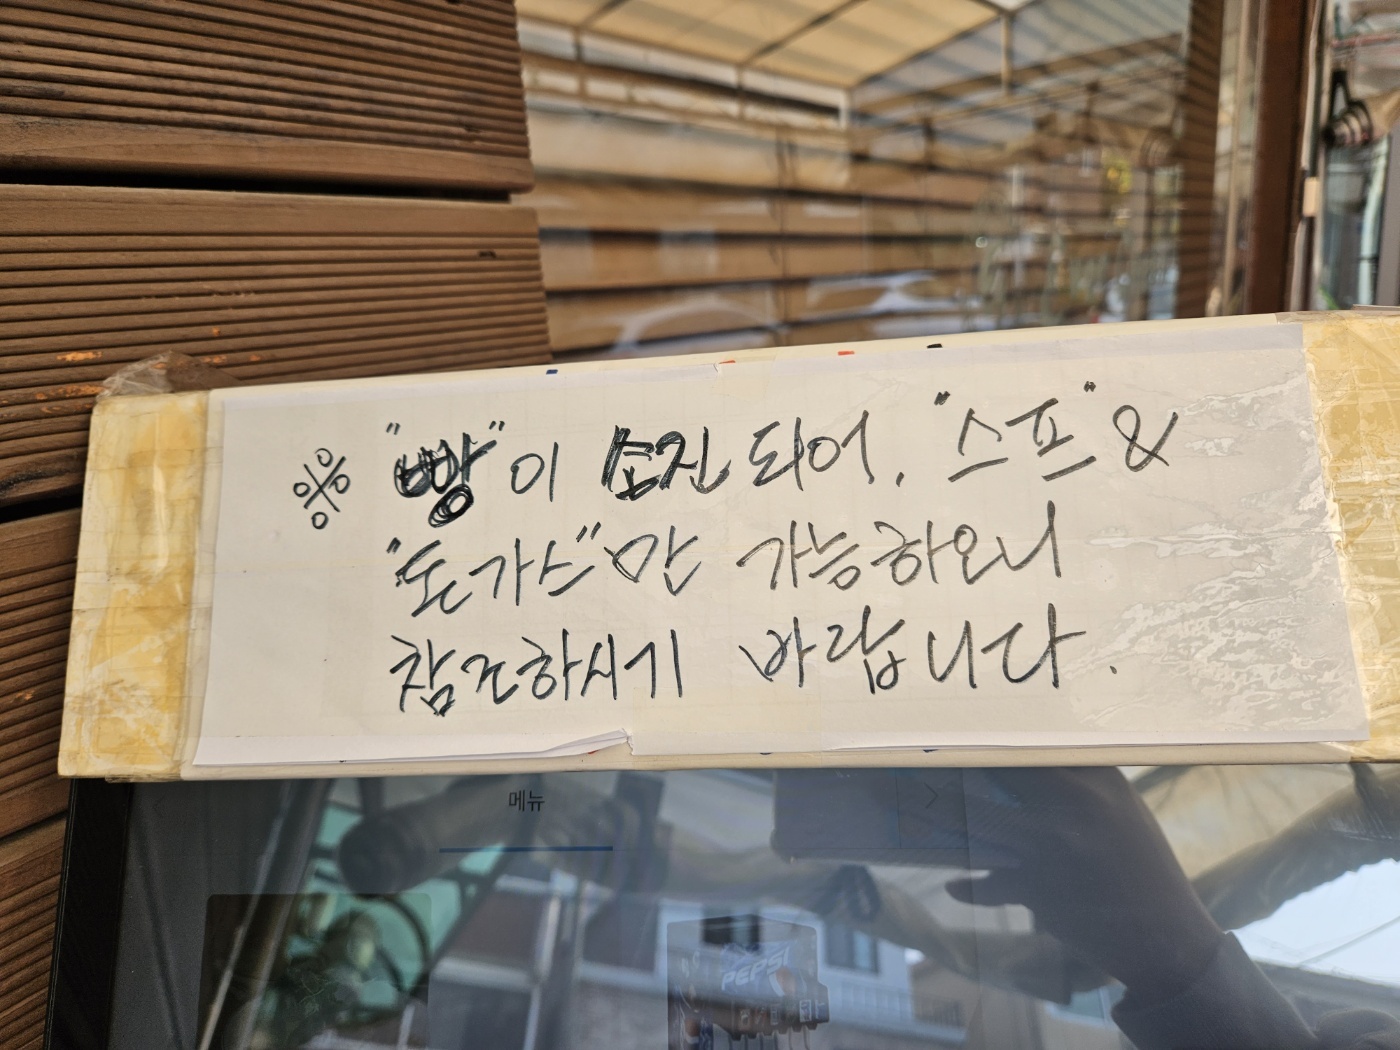 ※ "빵"이 소진 되어, "스프" &
"돈가스"만 가능하오니
참조하시기 바랍니다.
메뉴
PEPSI